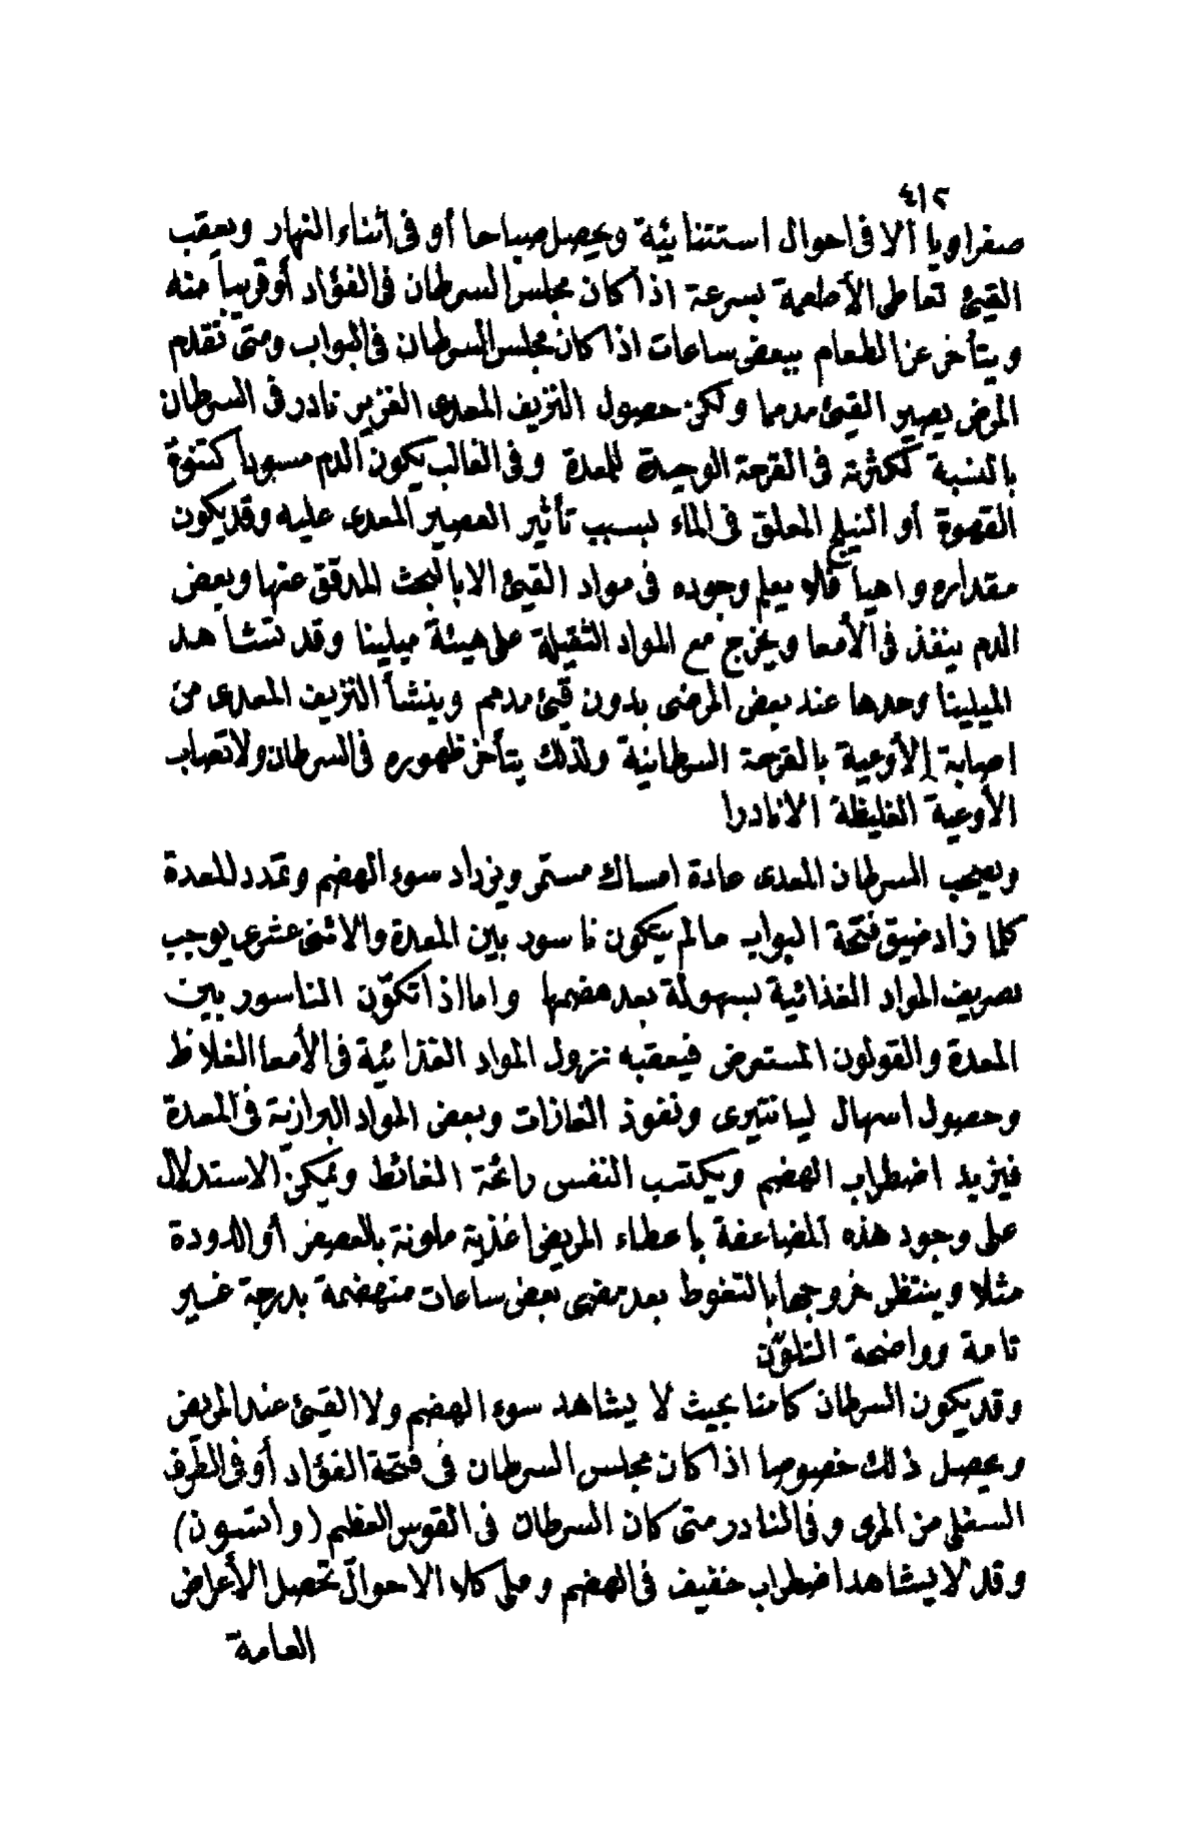 ٤١٢
صفراويا الا فى احوال استثنائية ويحصل صباحا أو فى أثناء النهار ويعقب
القيئ تعاطى الأطعمة بسرعة اذا كان مجلس السرطان فى الفؤاد أو قريبا منه
ويتأخر عن الطعام ببعض ساعات اذا كان مجلس السرطان فى البواب ومتى تقدم
المرض يصير القيئ مدمما ولكن حصول النزيف المعدى الغزير نادر فى السرطان
بالنسبة لكثرته فى القرحة الوحيدة للمعدة وفى الغالب يكون الدم مسودا كتنوة
القهوة أو النيلج المعلق فى الماء بسبب تأثير العصير المعدى عليه وقد يكون
مقداره واهيا فلا يعلم وجوده فى مواد القيئ الا بالبحث المدقق عنها وبعض
الدم ينفذ فى الأمعا ويخرج مع المواد الثقيلة على هيئة ميلينا وقد تشاهد
الميلينا وحدها عند بعض المرضى بدون قيئ مدمم وينشأ النزيف المعدى من
اصابة الأوعية بالقرحة السرطانية ولذلك يتأخر ظهوره فى السرطان ولا تصاب
الأوعية الغليظة الا نادرا
ويصحب السرطان المعدى عادة امساك مستمر ويزداد سوء الهضم وتمدد للمعدة
كلما زاد ضيق فتحة البواب مالم يتكون ناسور بين المعدة والاثنى عشرى يوجب
تصريف المواد الغذائية بسهولة بعد هضمها واما اذا تكوّن الناسور بين
المعدة والقولون المستعرض فيعقبه نزول المواد الغذائية فى الأمعا الغلاظ
وحصول اسهال ليانتيرى ونفوذ الغازات وبعض المواد البرازية فى المعدة
فيزيد اضطراب الهضم ويكتسب النفس رائحة الغائط ويمكن الاستدلال
على وجود هذه المضاعفة باعطاء المريض اغذية ملونة بالعصفر أو الدودة
مثلا وينتظر خروجها بالتغوط بعد مضى بعض ساعات منهضمة بدرجة غير
تامة وواضحة التلوّن
وقد يكون السرطان كامنا بحيث لا يشاهد سوء الهضم ولا القيئ عند المريض
ويحصل ذلك خصوصا اذا كان مجلس السرطان فى فتحة الفؤاد أو فى الطرف
السفلى من المرى وفى النادر متى كان السرطان فى القوس العظم (واتسون)
وقد لا يشاهد اضطراب خفيف فى الهضم وعلى كلا الاحوال تحصل الأعراض
العامة